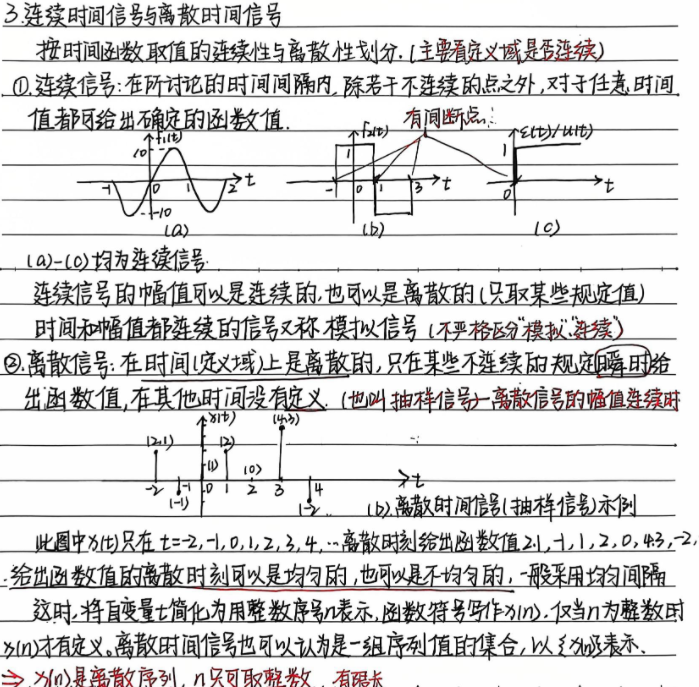 3.连续时间信号与离散时间信号
按时间函数取值的连续性与离散性划分.(主要看定义域是否连续)
①.连续信号:在所讨论的时间间隔内,除若干不连续的点之外,对于任意时间
值都可给出确定的函数值.
有间断点:
f₁(t) 10 -1 0 1 2 t -10
(a)
f₂(t) 1 -1 0 1 3 t
(b)
ε(t)/u(t) 1 0 t
(c)
(a)-(c)均为连续信号.
连续信号的幅值可以是连续的,也可以是离散的(只取某些规定值)
时间和幅值都连续的信号又称模拟信号(不严格区分"模拟""连续")
②.离散信号:在时间(定义域)上是离散的,只在某些不连续的规定瞬时给
出函数值,在其他时间没有定义.(也叫抽样信号)—离散信号的幅值连续时
x(t) (2.1) (-1) (1) (2) (0) (4.3) (-2)
-2 -1 0 1 2 3 4 t
(b).离散时间信号(抽样信号)示例
此图中x(t)只在t=-2,-1,0,1,2,3,4,…离散时刻给出函数值2.1,-1,1,2,0,4.3,-2,
给出函数值的离散时刻可以是均匀的,也可以是不均匀的,一般采用均匀间隔
这时,将自变量t简化为用整数序号n表示,函数符号写作x(n).仅当n为整数时
x(n)才有定义。离散时间信号也可以认为是一组序列值的集合,以{x(n)}表示.
⇒ x(n)是离散序列,n只可取整数,有限长